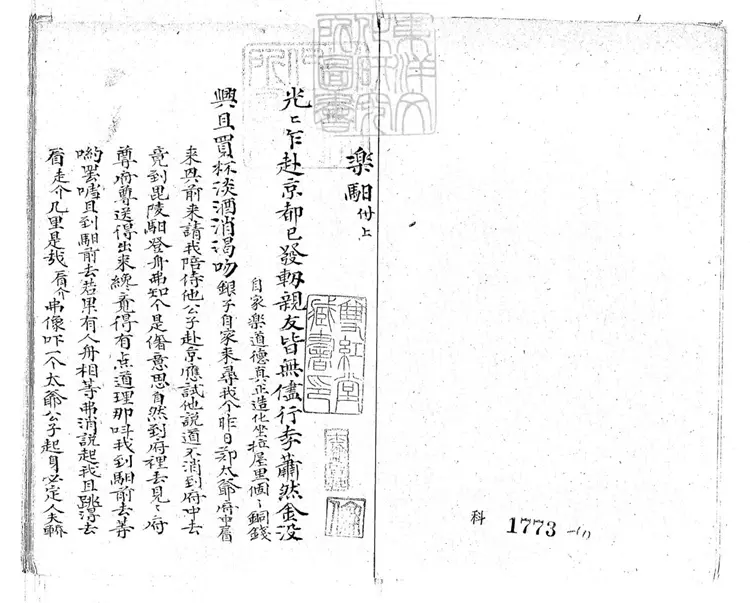 楽馹 付上
光〻乍赴京都已發軔親友皆無儘行李蕭然金没
興且買杯淡酒消渴吻
自家楽道德真正造化坐拉屋里個〻銅錢
銀子自家来尋我个昨日卲太爺府中眉
来与前来請我陪侍他公子赴京應試他説道不消到府中去
竟到毘陵馹登舟弗知个是僭意思自然到府裡去見〻府
尊府尊送得出来纔竟得有点道理那叫我到馹前去等
喲罢嘘且到馹前去若果有人舟相等弗消説起我且跳得去
看走介几里是哉看介弗像吓一个太爺公子起身必定人夫轎
東洋文化研究所圖書
雙紅堂藏書印
科 1773